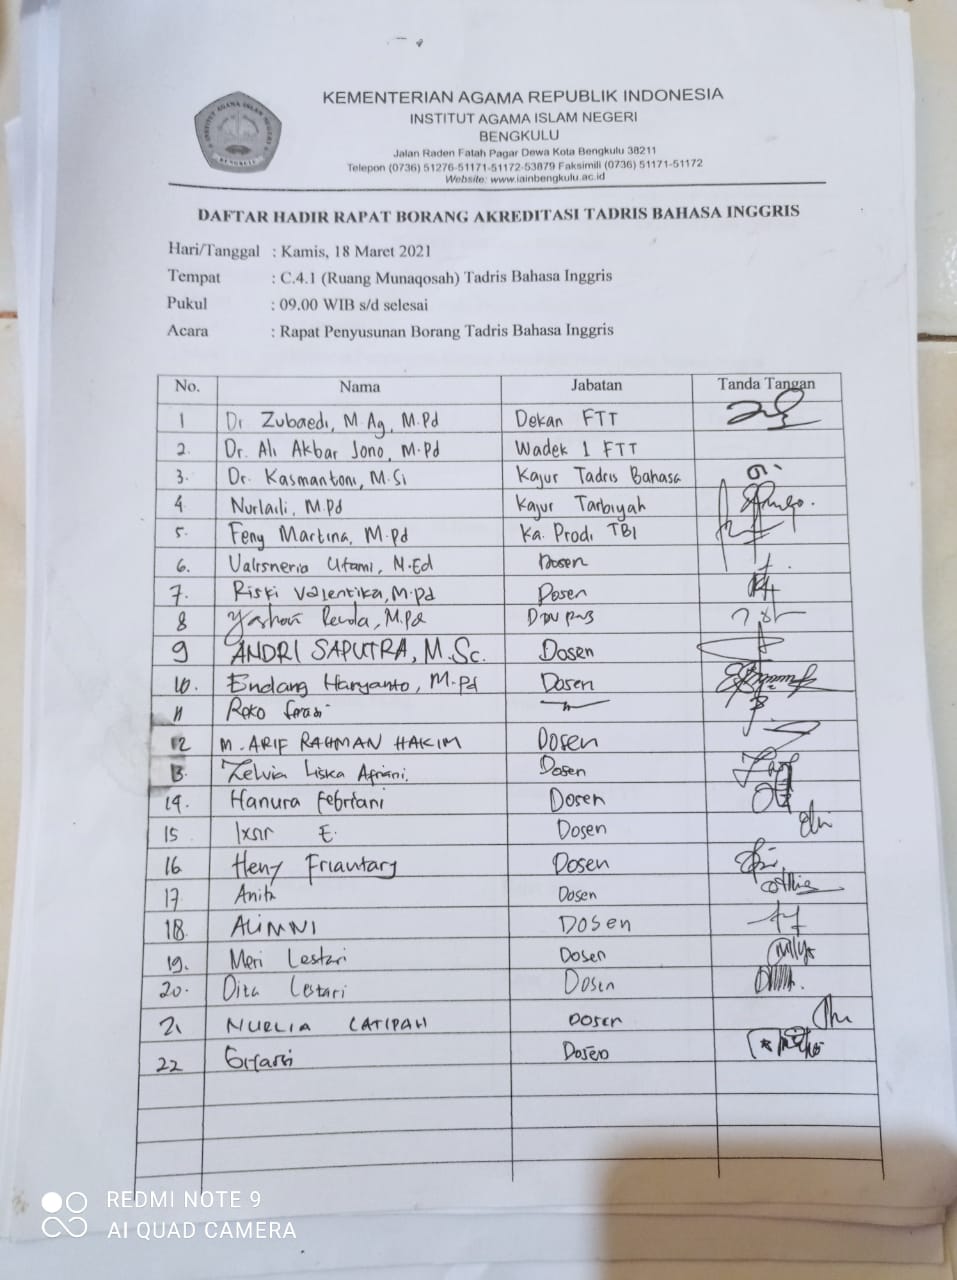 INSTITUT AGAMA ISLAM NEGERI
BENGKULU
KEMENTERIAN AGAMA REPUBLIK INDONESIA
INSTITUT AGAMA ISLAM NEGERI
BENGKULU
Jalan Raden Fatah Pagar Dewa Kota Bengkulu 38211
Telepon (0736) 51276-51171-51172-53879 Faksimili (0736) 51171-51172
Website: www.iainbengkulu.ac.id
DAFTAR HADIR RAPAT BORANG AKREDITASI TADRIS BAHASA INGGRIS
Hari/Tanggal : Kamis, 18 Maret 2021
Tempat : C.4.1 (Ruang Munaqosah) Tadris Bahasa Inggris
Pukul : 09.00 WIB s/d selesai
Acara : Rapat Penyusunan Borang Tadris Bahasa Inggris
No. Nama Jabatan Tanda Tangan
1 Dr Zubaedi, M.Ag, M.Pd Dekan FTT
2. Dr. Ali Akbar Jono, M.Pd Wadek 1 FTT
3. Dr. Kasmantoni, M.Si Kajur Tadris Bahasa
4 Nurlaili, M.Pd Kajur Tarbiyah
5. Feny Martina, M.Pd Ka. Prodi TBI
6. Valisneria Utami, M.Ed Dosen
7. Riski Valentika, M.Pd Dosen
8 M.Pd
9 ANDRI SAPUTRA, M.Sc. Dosen
10. Endang Haryanto, M.Pd Dosen
11 Reko
12 M. ARIF RAHMAN HAKIM Dosen
13. Zelvia Liska Afriani. Dosen
14. Hanura Febriani Dosen
15 Ixsir E. Dosen
16 Heny Friantary Dosen
17 Anita Dosen
18. ALIMNI DOSEN
19. Meri Lestari Dosen
20. Dita Lestari Dosen
21 NURLIA LATIPAH DOSEN
22 Dosen
REDMI NOTE 9
AI QUAD CAMERA